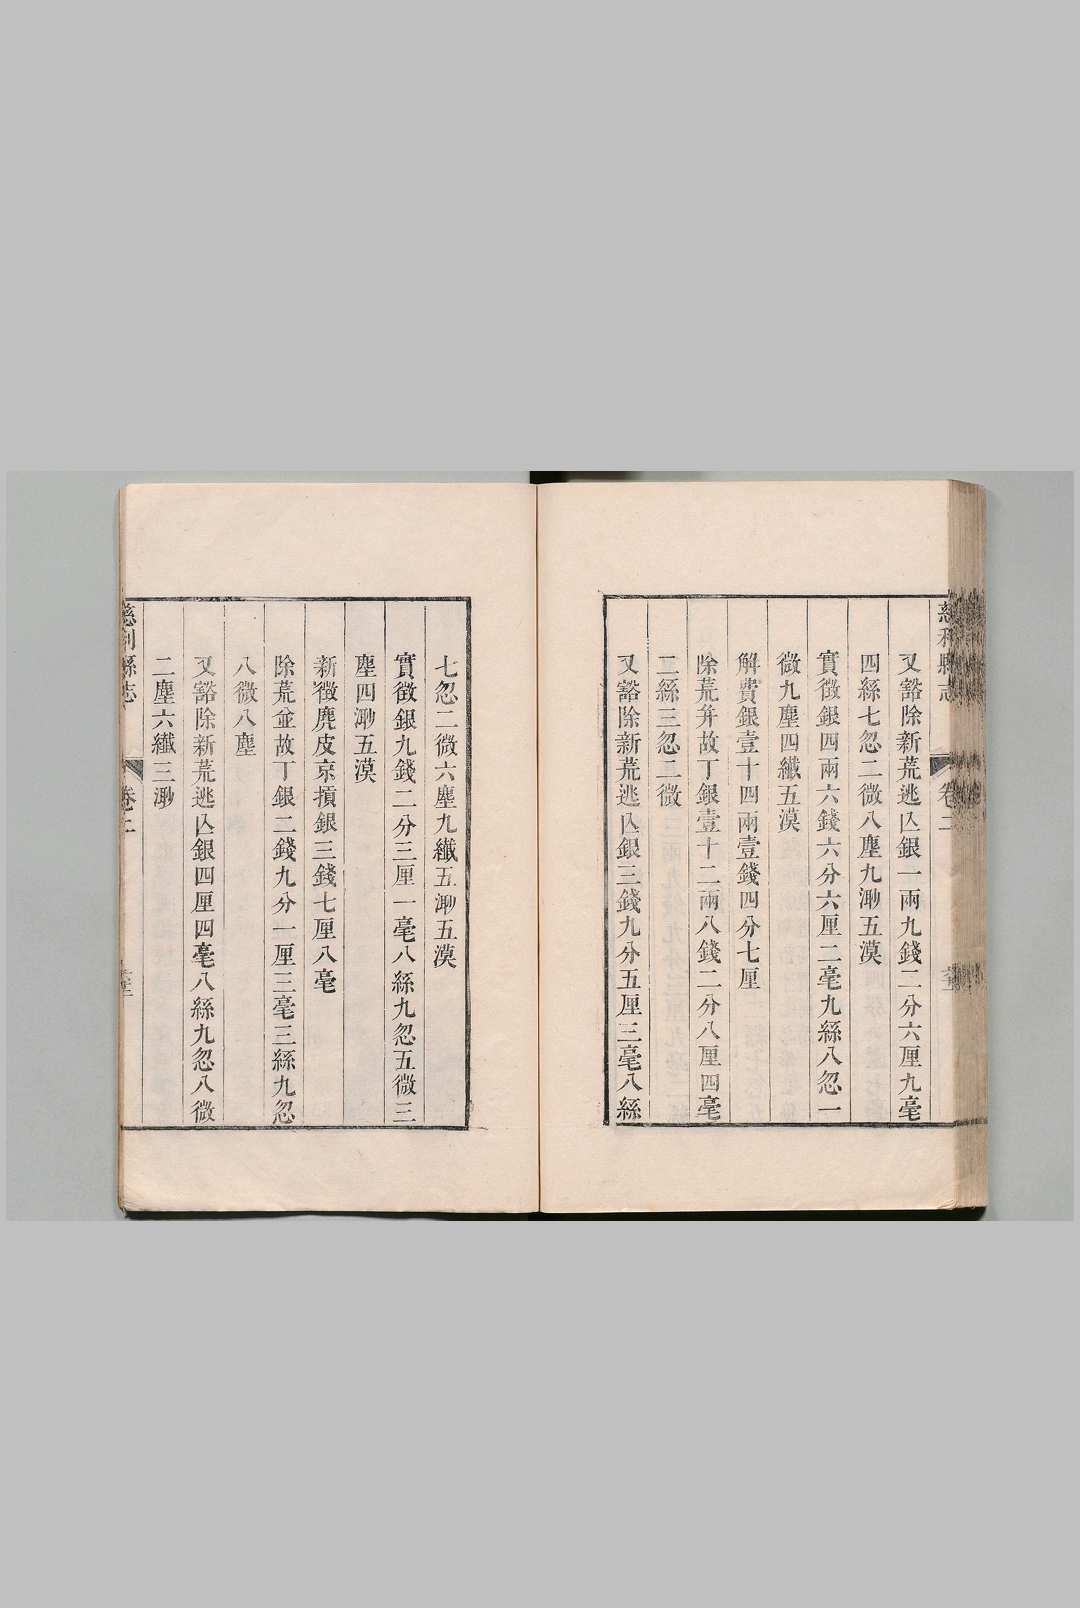 慈利縣志
卷二
又豁除新荒逃亾銀一兩九錢二分六厘九毫
四絲七忽二微八塵九渺五漠
實徵銀四兩六錢六分六厘二毫九絲八忽一
微九塵四纖五漠
解費銀壹十四兩壹錢四分七厘
除荒并故丁銀壹十二兩八錢二分八厘四毫
二絲三忽二微
又豁除新荒逃亾銀三錢九分五厘三毫八絲
七忽二微六塵九纖五渺五漠
實徵銀九錢二分三厘一毫八絲九忽五微三
塵四渺五漠
新徵麂皮京損銀三錢七厘八毫
除荒並故丁銀二錢九分一厘三毫三絲九忽
八微八塵
又豁除新荒逃亾銀四厘四毫八絲九忽八微
二塵六纖三渺
慈利縣志
卷二